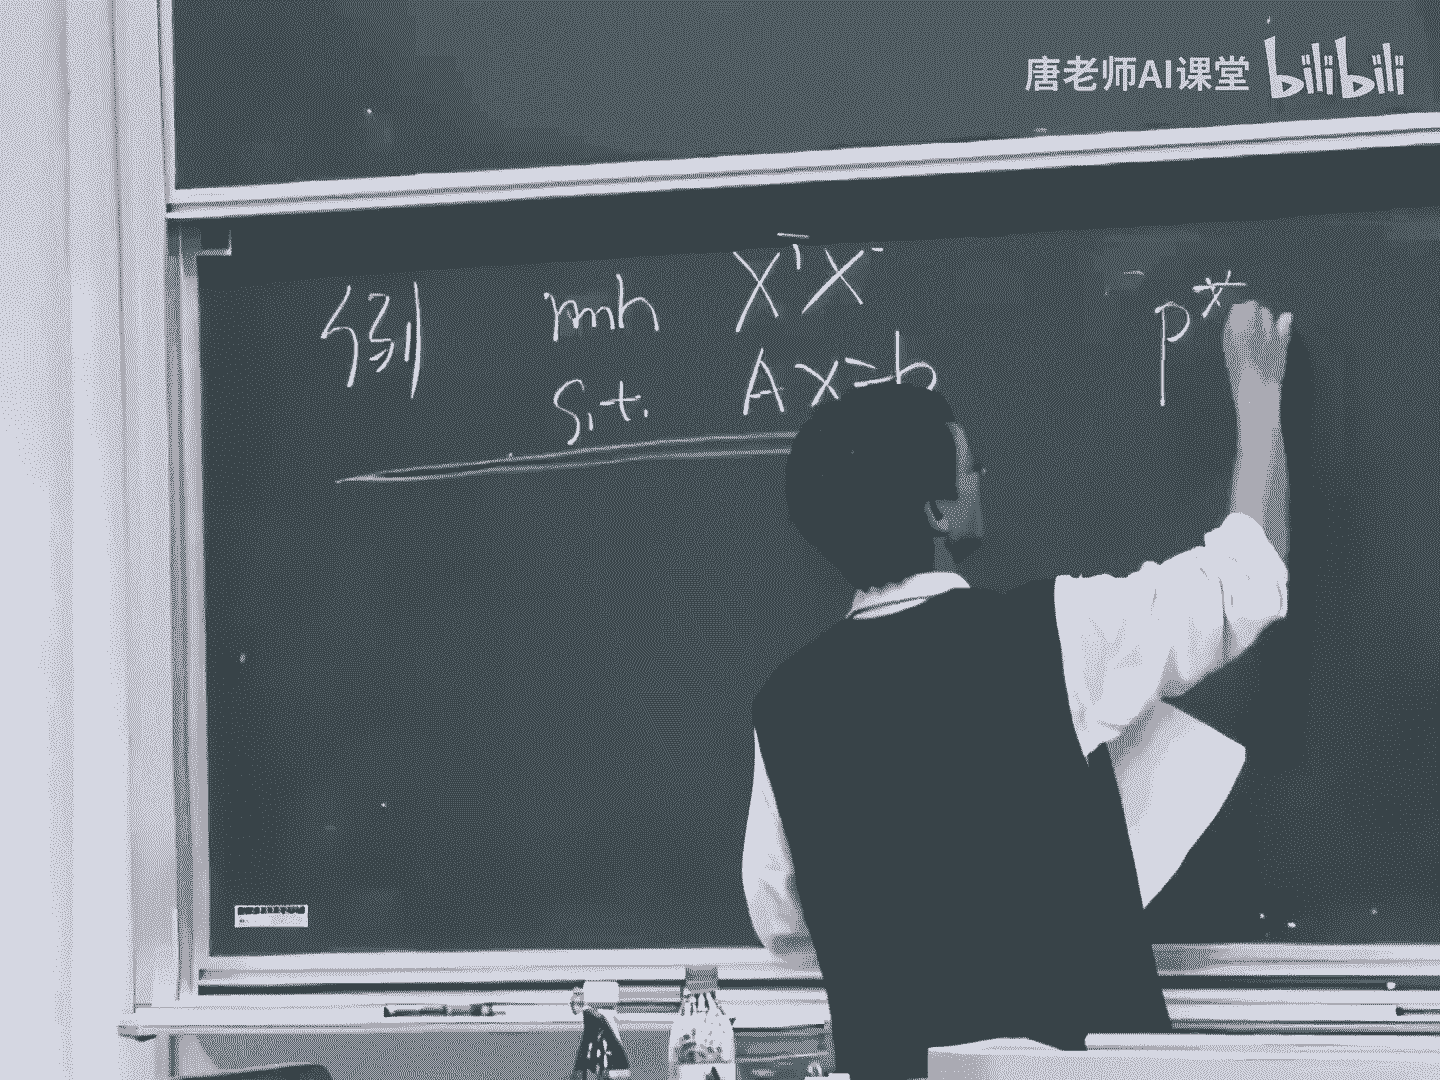 唐老师AI课堂 bilibili
例 min XᵀX
s.t. Ax=b
p*